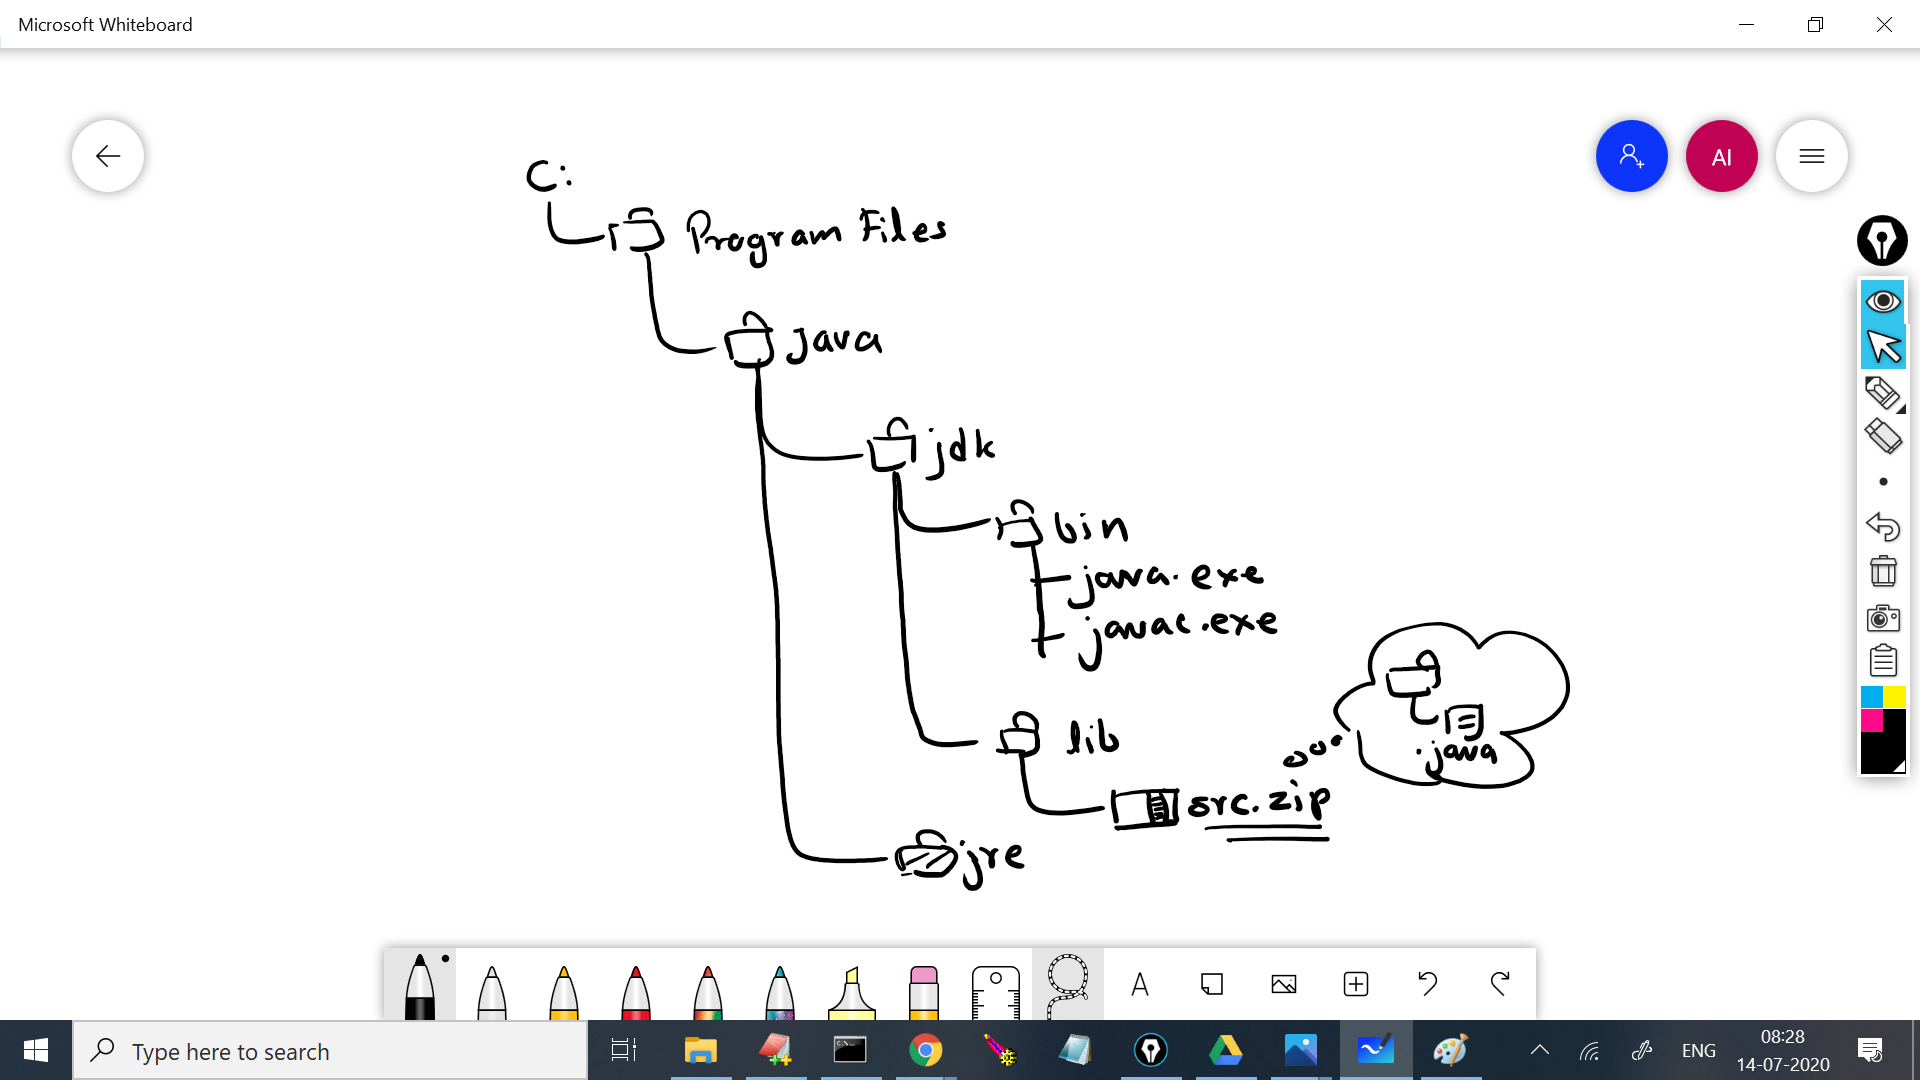 Microsoft Whiteboard
AI
C:
Program Files
java
jdk
bin
java.exe
javac.exe
lib
.java
src.zip
jre
A
Type here to search
ENG
08:28
14-07-2020